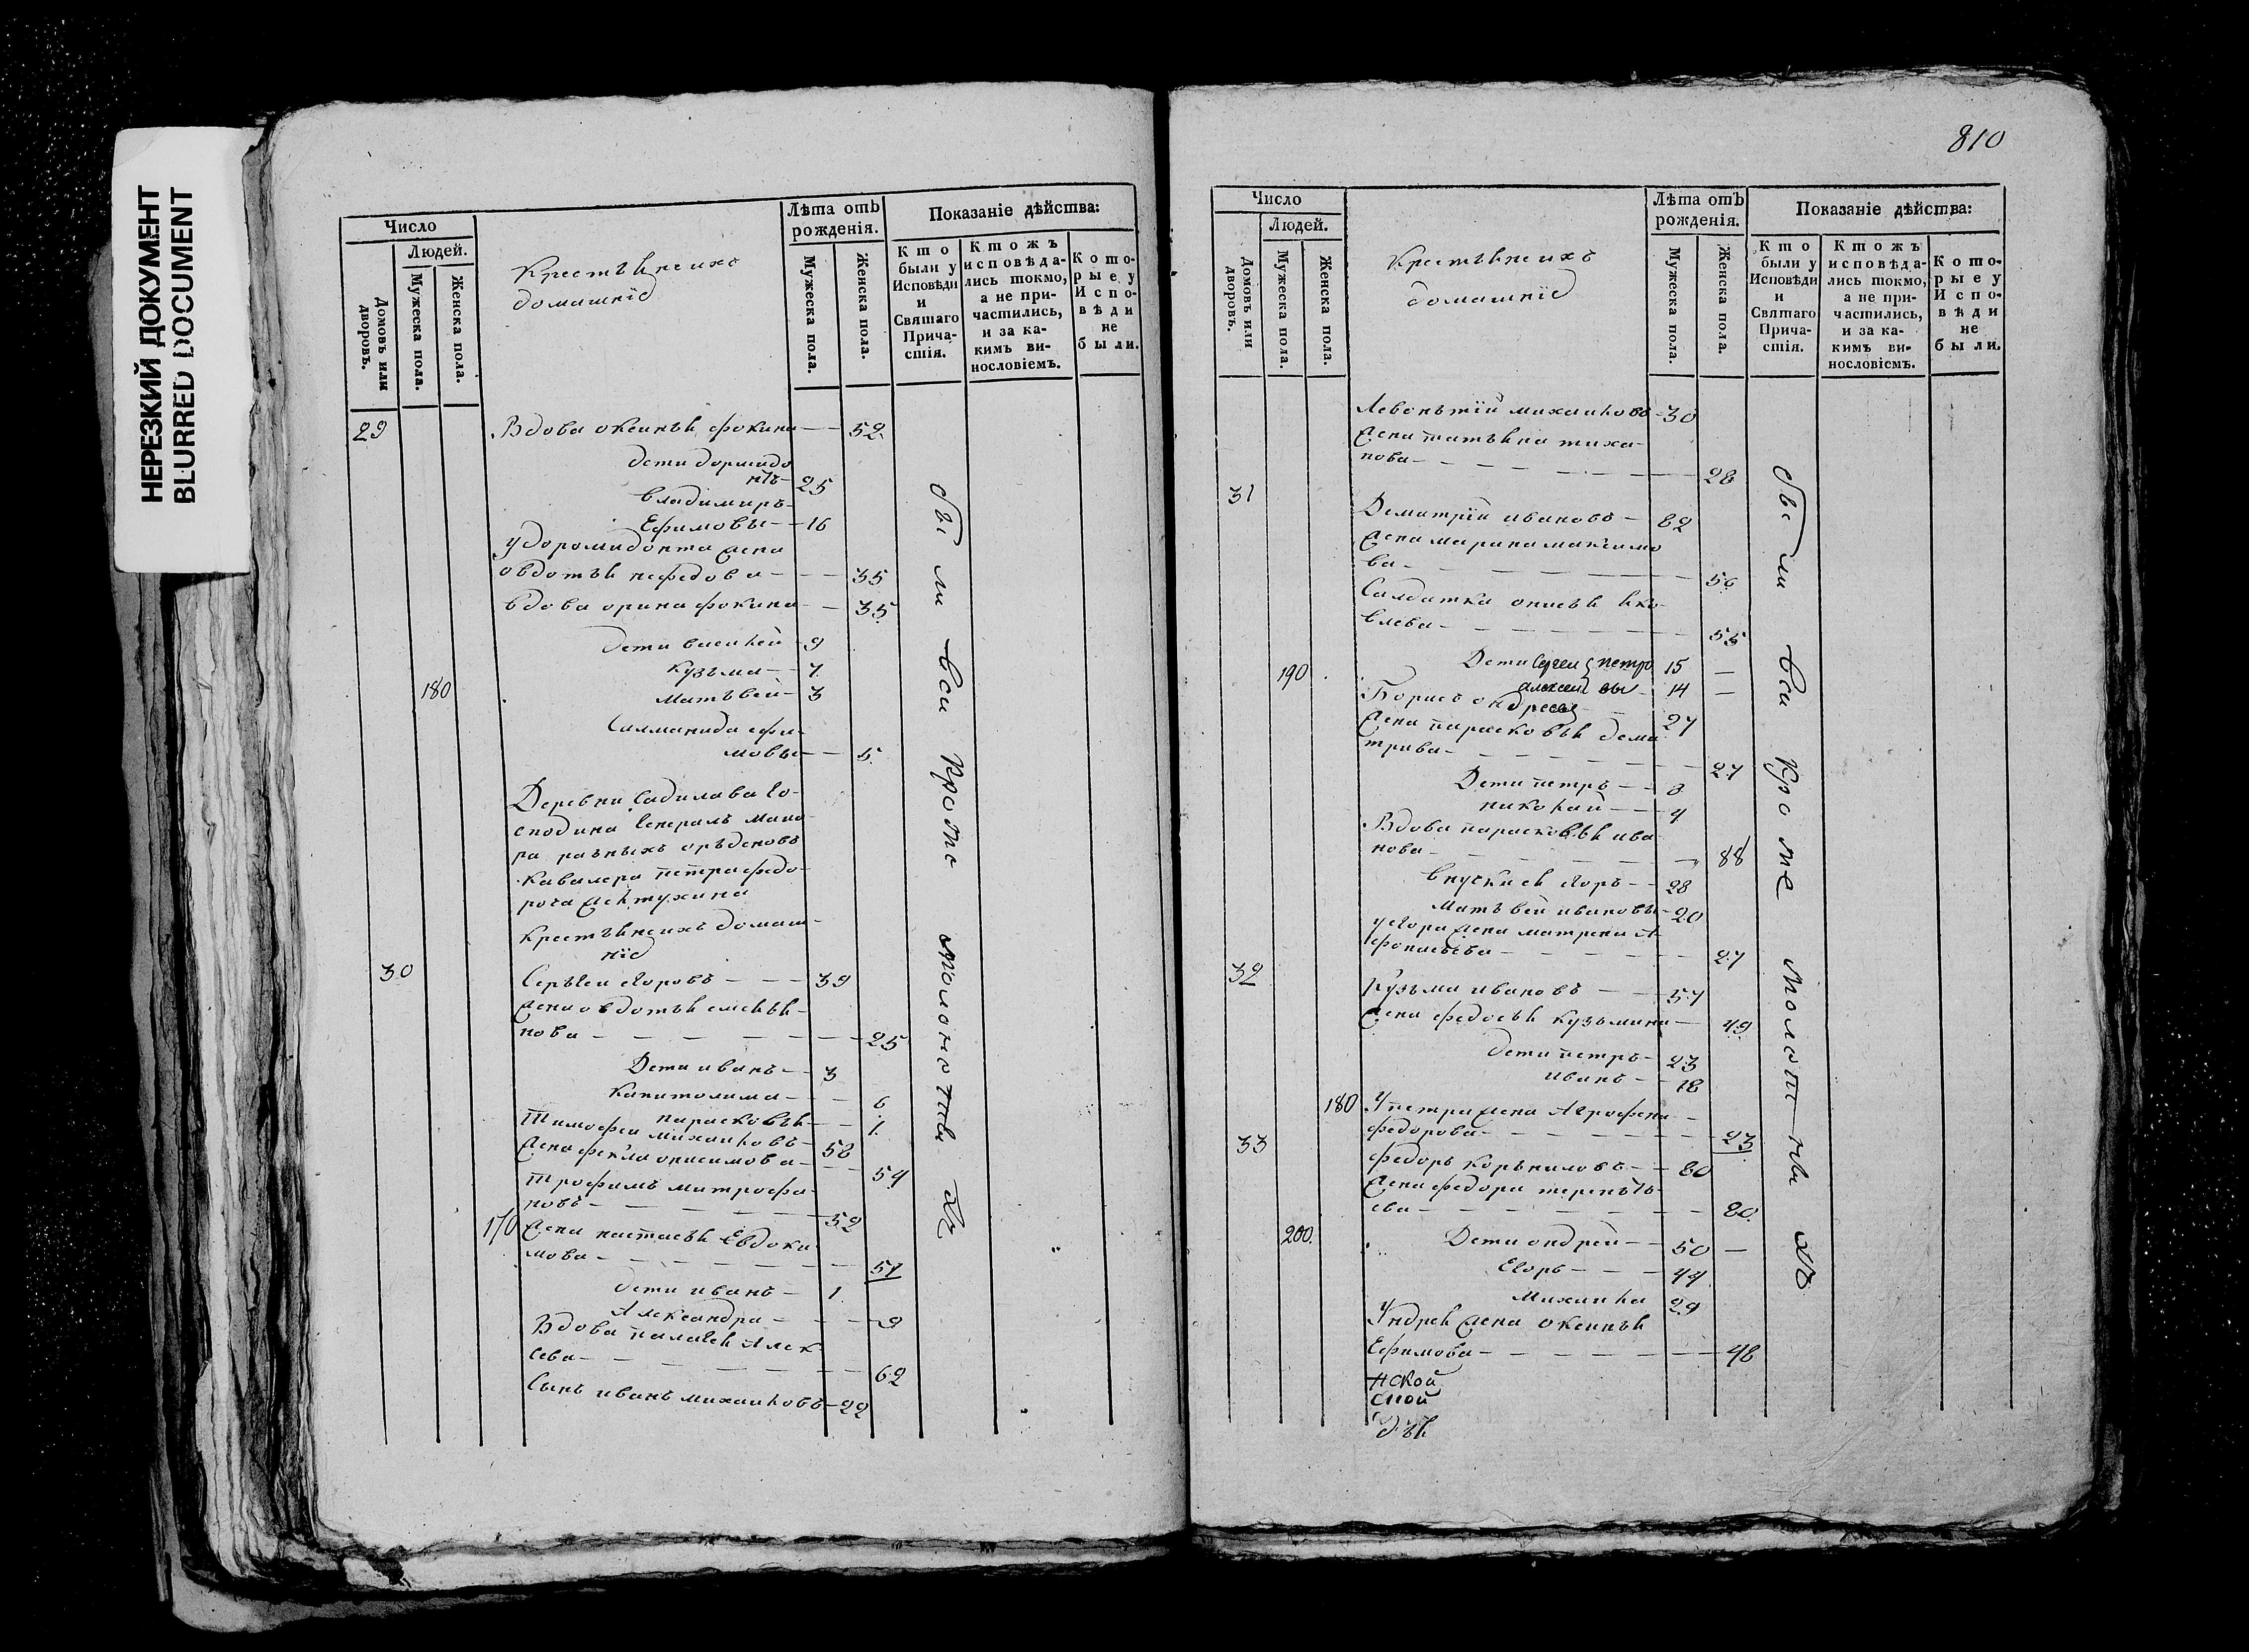 НЕРЕЗКИЙ ДОКУМЕНТ
BLURRED DOCUMENT
Число
Людей.
Домовъ или дворовъ.
Мужеска пола.
Женска пола.
Крестьянеихъ
домашнiе
Лѣта отъ
рожденія.
Мужеска пола.
Женска пола.
Показаніе дѣйства:
Кто
были у
Исповѣди
и
Святаго
Прича-
стія.
Ктожъ
исповѣда-
лись токмо,
а не при-
частились,
и за ка-
кимъ ви-
нословіемъ.
Кото-
рые у
Испо-
вѣди
не
были.
29 Вдова оксинья фокина 52
дети дормидо
нтъ 25
владимиръ
Ефимовы 16
у доромидонта жена
овдотья нефедова 35
вдова орина фокина 35
дети василей 9
кузьма 7
180 матьвей 3
ефи-
мовы 5
Деревни го-
сподина генералъ маио-
ра разныхъ орьденовъ
кавалера петра федо-
рова
крестьянеихъ домаш-
нiе
30 Серьгеи егоровъ 39
жена овдотья емелья-
нова 25
Дети иванъ 3
капитолина 6
парасковья 1
тимофеи михаиловъ 58
жена фекла онисимова 54
трофимъ митрофа-
новъ 52
170 жена настасья Евдоки
мова 51
дети иванъ 1
Александра 9
Вдова палагея Алек
сева 62
Сынъ иванъ михаиловъ 22
были вси кроме молонетныхъ
810
Число
Людей.
Домовъ или дворовъ.
Мужеска пола.
Женска пола.
Крестьянеихъ
домашнiе
Лѣта отъ
рожденія.
Мужеска пола.
Женска пола.
Показаніе дѣйства:
Кто
были у
Исповѣди
и
Святаго
Прича-
стія.
Ктожъ
исповѣда-
лись токмо,
а не при-
частились,
и за ка-
кимъ ви-
нословіемъ.
Кото-
рые у
Испо-
вѣди
не
были.
Левонътiй михаиловъ 30
жена татьяна тиха-
нова 28
31 Демитрiй ивановъ 62
жена марина максимо
ва 56
Салдатка онисья яко-
влева 55
190 Дети Сергеи петро 15
алексеи вы 14
Борисъ ондреевъ 27
жена парасковья деми
трива 27
Дети петръ 8
николай 4
Вдова парасковья ива
нова 88
внучки ея егоръ 28
Матьвей ивановы 20
у егора жена матрена А
фонасьева 27
32 Кузьма ивановъ 57
жена федосья кузьмина 49
дети петръ 23
иванъ 18
180 У петра жена Аграфена
федорова 23
33 федоръ корьниловъ 80
жена федора терентъ-
ева 80
200 Дети ондрей 50
Егоръ 44
Михаила 29
Уондрея жена оксинья
Ефимова 48
были вси кроме молонетныхъ